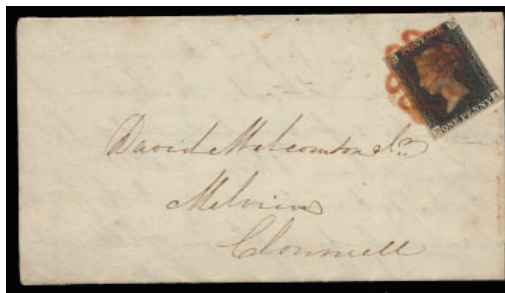 POSTAGE
ONE PENNY
David Malcomson Sr
Melview
Clonmell